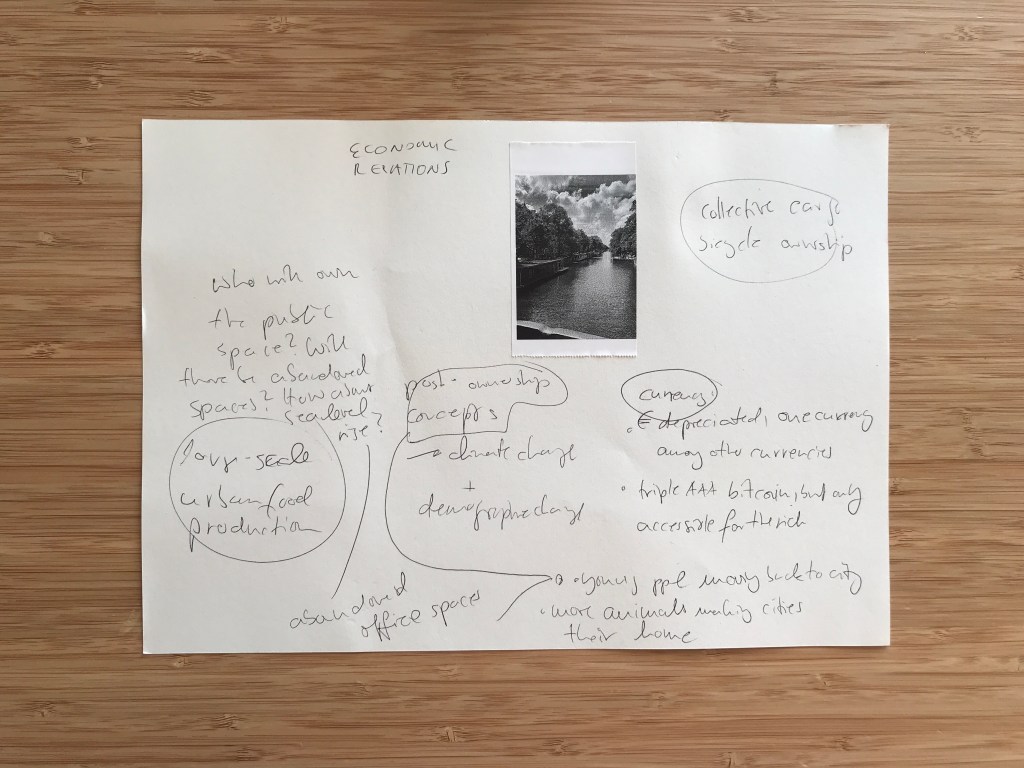 ECONOMIC
RELATIONS
collective cargo
bicycle ownership
who will own
the public
space? Will
there be abandoned
spaces? How about
sea level
rise?
urban food
production
post-ownership
concepts
→ climate change
+
demographic change
currency:
• € depreciated, one currency
among other currencies
• triple AAA bitcoin, but only
accessible for the rich
abandoned
office spaces
• young ppl moving back to city
• more animals making cities
their home